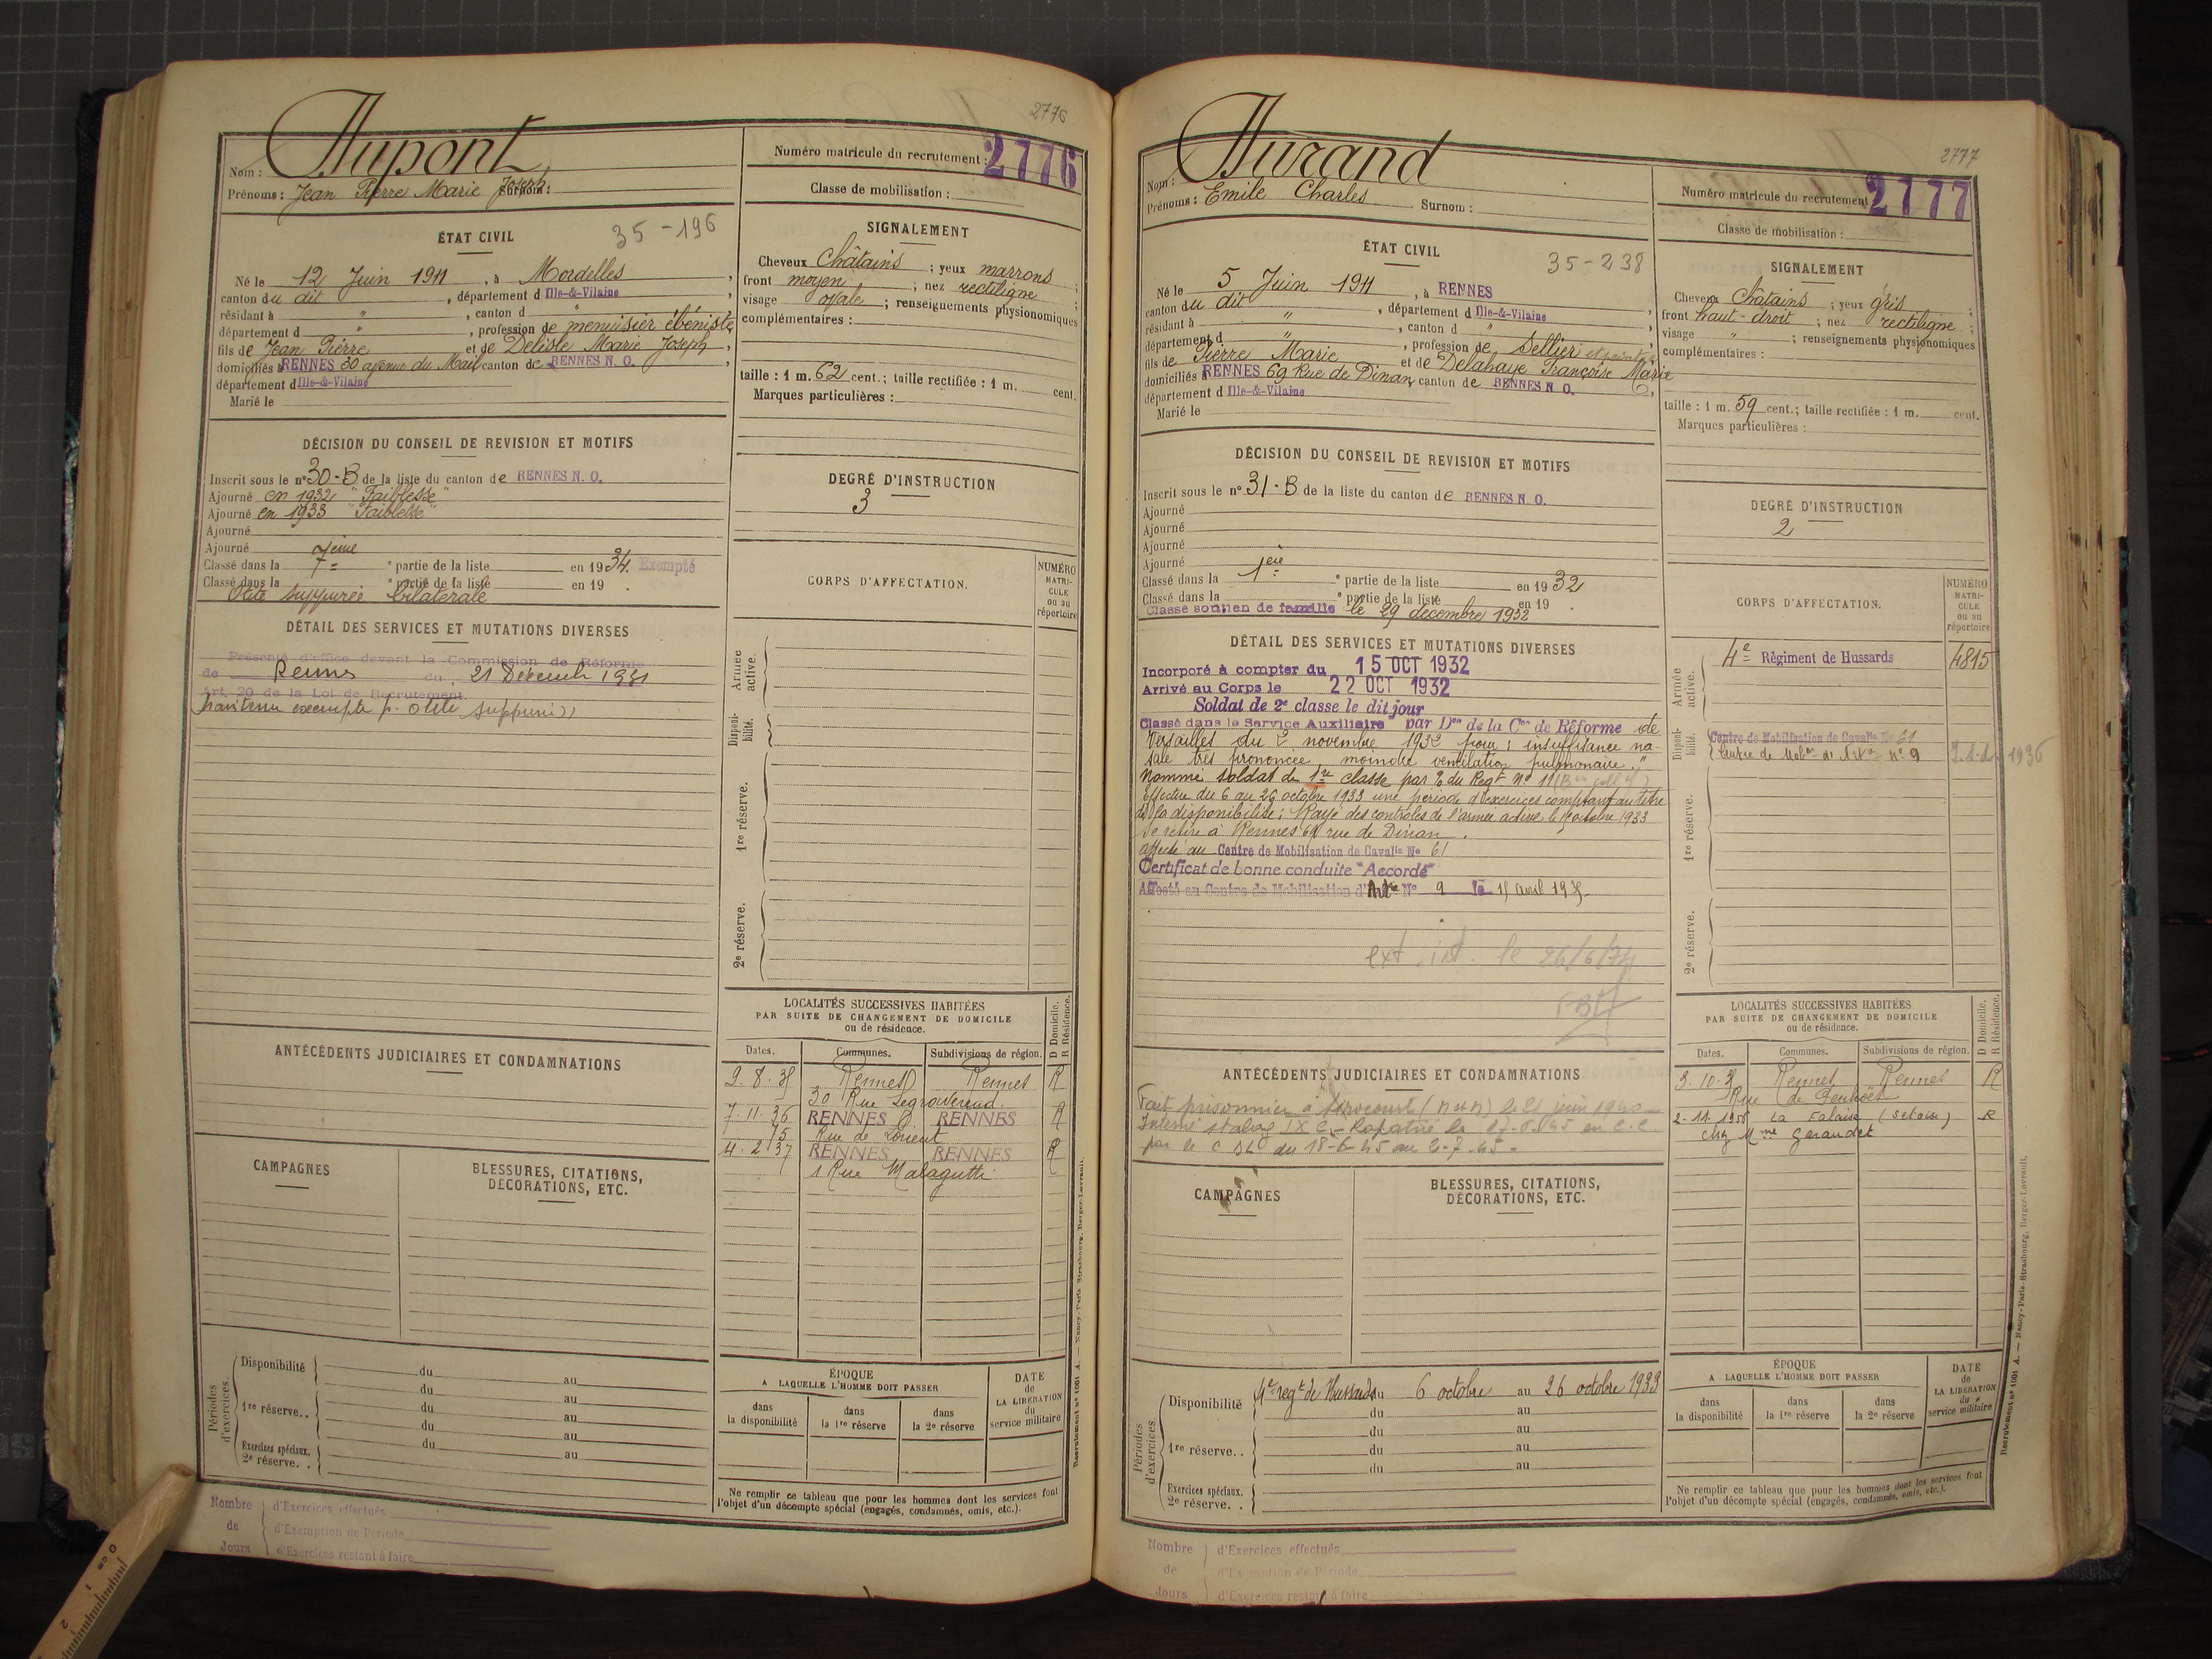 2776
Dupont
Nom :
Prénoms : Jean Pierre Marie Joseph Surnom :
Numéro matricule du recrutement : 2776
Classe de mobilisation :
ÉTAT CIVIL
35-196
Né le 12 Juin 1911, à Mordelles,
canton du dit, département d Ille-&-Vilaine,
résidant à ", canton d ",
département d ", profession de menuisier ébéniste,
fils de Jean Pierre et de Delisle Marie Joseph,
domiciliés à RENNES 30 avenue du Mail canton de RENNES N. O.,
département d Ille-&-Vilaine
Marié le
SIGNALEMENT
Cheveux Châtains ; yeux marrons ;
front moyen ; nez rectiligne ;
visage ovale ; renseignements physionomiques
complémentaires :
taille : 1 m. 62 cent.; taille rectifiée : 1 m. cent.
Marques particulières :
DÉCISION DU CONSEIL DE REVISION ET MOTIFS
Inscrit sous le n° 30-B de la liste du canton de RENNES N. O.
Ajourné en 1932 "Faiblesse"
Ajourné en 1933 "Faiblesse"
Ajourné
Ajourné
Classé dans la 7ème partie de la liste en 1934. Exempté
Classé dans la ° partie de la liste en 19 .
Otite suppurée bilatérale
DEGRÉ D'INSTRUCTION
3
DÉTAIL DES SERVICES ET MUTATIONS DIVERSES
Présenté d'office devant la Commission de Réforme
de Rennes du 21 Décemb
Art. 20 de la Loi de Recrutement.
maintenu exempté p. otite
CORPS D'AFFECTATION.
NUMÉRO MATRI-CULE ou au répertoire
Armée active.
Disponi-bilité.
1re réserve.
2e réserve.
LOCALITÉS SUCCESSIVES HABITÉES
PAR SUITE DE CHANGEMENT DE DOMICILE
ou de résidence.
D Domicile. R Résidence.
Dates. Communes. Subdivisions de région.
Rennes Rennes R
30 Rue Legraverend
7.11.36 RENNES RENNES R
75 Rue de Lorient
4.2.37 RENNES RENNES R
1 Rue Malagutti
ANTÉCÉDENTS JUDICIAIRES ET CONDAMNATIONS
CAMPAGNES
BLESSURES, CITATIONS,
DÉCORATIONS, ETC.
Périodes d'exercices.
Disponibilité du au
du au
1re réserve. . du au
du au
Exercices spéciaux. 2e réserve. . du au
ÉPOQUE
A LAQUELLE L'HOMME DOIT PASSER
dans la disponibilité
dans la 1re réserve
dans la 2e réserve
DATE de LA LIBÉRATION du service militaire
Ne remplir ce tableau que pour les hommes dont les services font
l'objet d'un décompte spécial (engagés, condamnés, omis, etc.).
Recrutement n° 1001 A. — Nancy-Paris-Strasbourg, Berger-Levrault.
Nombre de Jours
d'Exercices effectués
d'Exemption de Période
d'Exercices restant à faire
2777
Durand
Nom :
Prénoms : Emile Charles Surnom :
Numéro matricule du recrutement 2777
Classe de mobilisation :
ÉTAT CIVIL
35-238
Né le 5 Juin 1911, à RENNES
canton du dit, département d Ille-&-Vilaine,
résidant à ", canton d ",
département d ", profession de Sellier et peintre,
fils de Pierre Marie et de Delahaye Françoise Marie
domiciliés à RENNES 69 Rue de Dinan, canton de RENNES N. O.,
département d Ille-&-Vilaine
Marié le
SIGNALEMENT
Cheveux Châtains ; yeux gris ;
front haut-droit ; nez rectiligne ;
visage " ; renseignements physionomiques
complémentaires :
taille : 1 m. 59 cent.; taille rectifiée : 1 m. cent.
Marques particulières :
DÉCISION DU CONSEIL DE REVISION ET MOTIFS
Inscrit sous le n° 31-B de la liste du canton de RENNES N. O.
Ajourné
Ajourné
Ajourné
Ajourné
Classé dans la 1ère ° partie de la liste en 1932
Classé dans la ° partie de la liste en 19 .
Classé soutien de famille le 29 décembre 1932
DEGRÉ D'INSTRUCTION
2
DÉTAIL DES SERVICES ET MUTATIONS DIVERSES
Incorporé à compter du 15 OCT 1932
Arrivé au Corps le 22 OCT 1932
Soldat de 2e classe le dit jour
Classé dans le Service Auxiliaire par Don de la Con de Réforme de
Versailles du 2 novembre 1932 pour : insuffisance na-
sale très prononcée, moindre ventilation pulmonaire."
Nommé soldat de 1re classe par du Regt n° 11
Effectue du 6 au 26 octobre 1933 une période d'exercices comptant au titre
de la disponibilité ; Rayé des contrôles de l'armée active le octobre 1933
Se retire à Rennes 69 rue de Dinan.
affecté au Centre de Mobilisation de Cavalie No 61
Certificat de bonne conduite "Accordé"
Affecté au Centre de Mobilisation d'Artie No 9 le 15 avril
ext. int. le 26/6/74
CORPS D'AFFECTATION.
NUMÉRO MATRI-CULE ou au répertoire
Armée active.
4e Régiment de Hussards 4815
Disponi-bilité.
Centre de Mobilisation de Cavalie No 61
Centre de Mobon d'Artie n° 9
1936
1re réserve.
2e réserve.
LOCALITÉS SUCCESSIVES HABITÉES
PAR SUITE DE CHANGEMENT DE DOMICILE
ou de résidence.
D Domicile. R Résidence.
Dates. Communes. Subdivisions de région.
Rennes Rennes R
Rue de Penhoët
La Falaise R
chez Mme Garaudet
ANTÉCÉDENTS JUDICIAIRES ET CONDAMNATIONS
Fait prisonnier à (M et M) le 21 juin 1940
Interné stalag IX C - Rapatrié le
par le C du 18-6-45 au 2-7-45.
CAMPAGNES
BLESSURES, CITATIONS,
DÉCORATIONS, ETC.
Périodes d'exercices
Disponibilité 4e regt de Hussards du 6 octobre au 26 octobre 1933
du au
du au
1re réserve. . du au
du au
Exercices spéciaux. 2e réserve. .
ÉPOQUE
A LAQUELLE L'HOMME DOIT PASSER
dans la disponibilité
dans la 1re réserve
dans la 2e réserve
DATE de LA LIBÉRATION du service militaire
Ne remplir ce tableau que pour les hommes dont les services font
l'objet d'un décompte spécial (engagés, condamnés, omis, etc.).
Recrutement n° 1001 A. — Nancy-Paris-Strasbourg, Berger-Levrault.
Nombre de Jours
d'Exercices effectués
d'Exemption de Période
d'Exercices restant à faire
0 cm 1 2